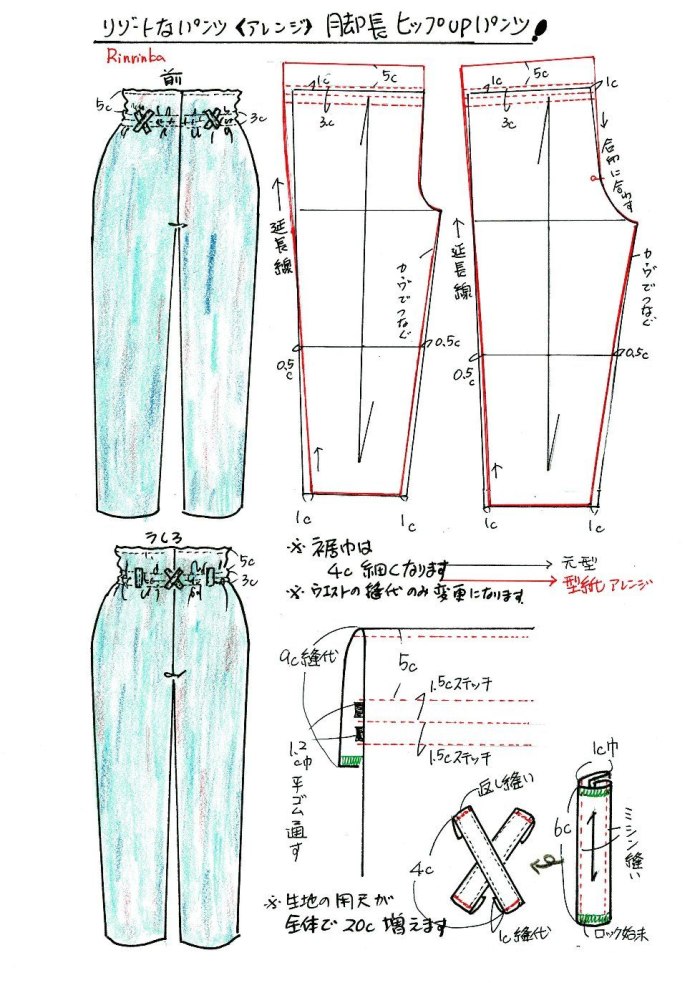 リゾートなパンツ《アレンジ》脚長ヒップUPパンツ!
Rinrinba
前
5c
3c
1c
5c
3c
延長線
カーヴでつなぐ
0.5c
0.5c
1c
1c
1c
5c
1c
3c
合印に合わす
延長線
カーヴでつなぐ
0.5c
0.5c
1c
1c
※裾巾は
4c細くなります
※ウエストの縫代のみ変更になります
元型
型紙アレンジ
うしろ
5c
3c
9c縫代
5c
1.5cステッチ
1.5cステッチ
1.2c巾平ゴム通す
返し縫い
4c
1c縫代
1c巾
6c
ミシン縫い
ロック始末
※生地の用尺が
全体で20c増えます